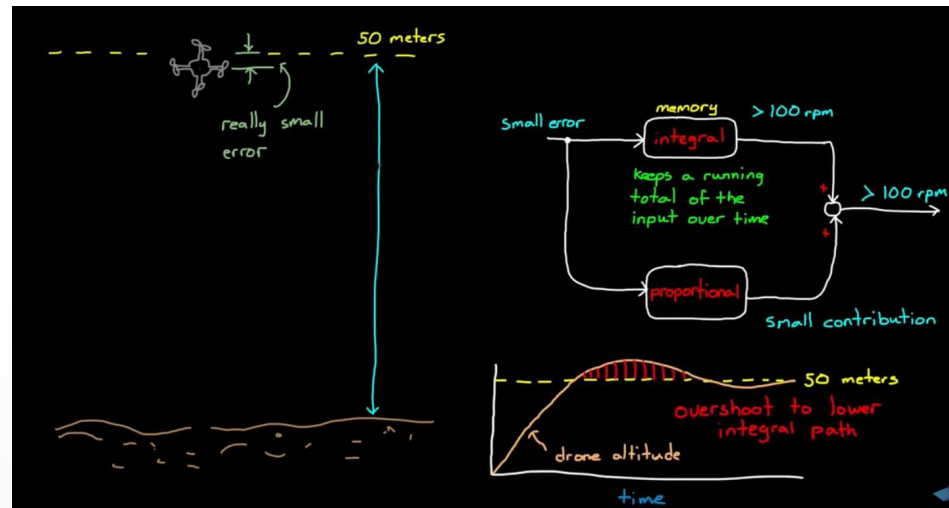 50 meters
really small
error
memory
> 100 rpm
small error
integral
keeps a running
total of the
input over time
+
> 100 rpm
+
proportional
small contribution
50 meters
overshoot to lower
integral path
drone altitude
time